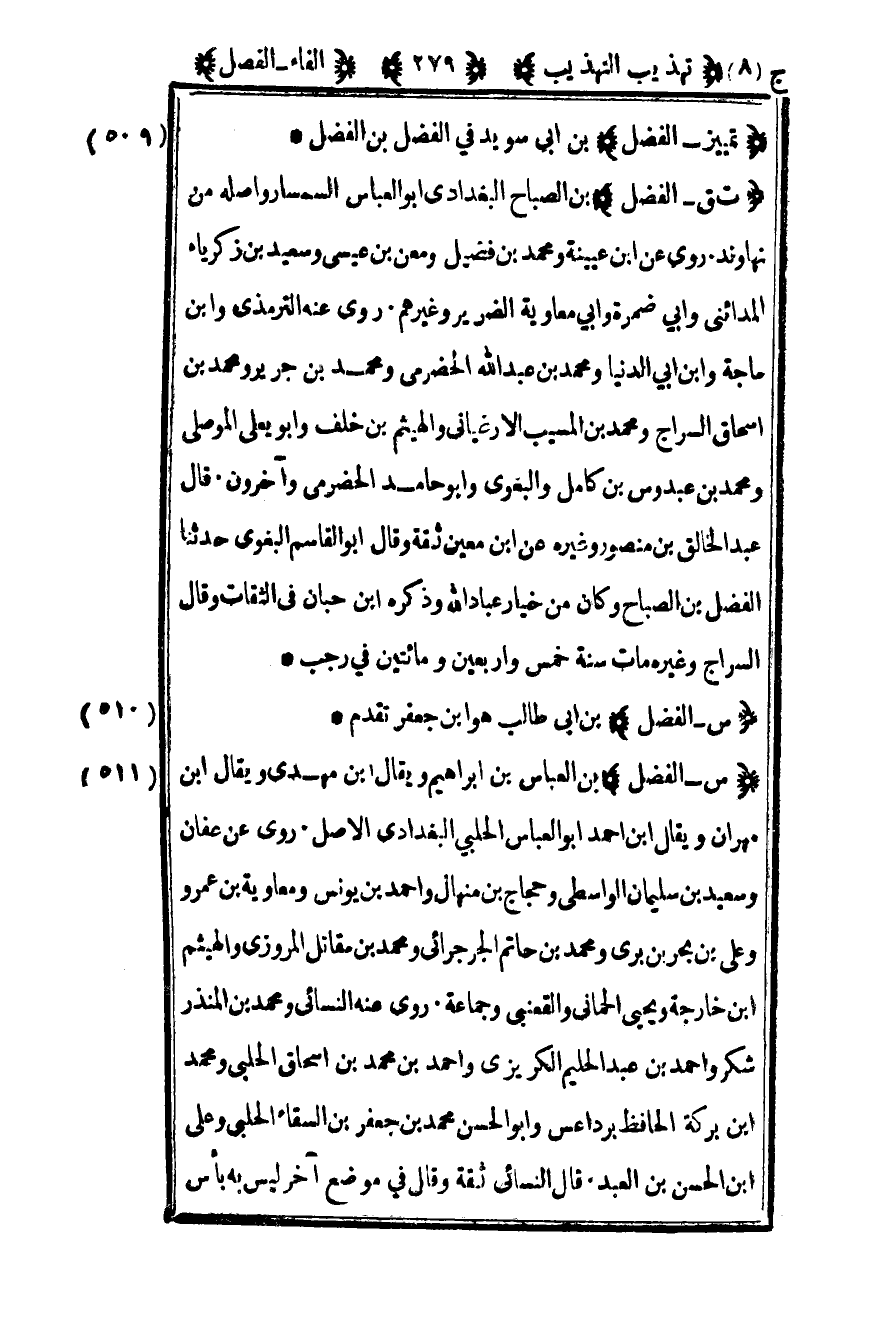 ج (٨) ﴿ تهذيب التهذيب ﴾ ﴿ ٢٧٩ ﴾ ﴿ الفاء ـ الفضل ﴾
﴿ تمييز ـ الفضل ﴾ بن ابي سويد في الفضل بن الفضل * (٥٠٩)
﴿ ت ق ـ الفضل ﴾ بن الصباح البغدادى ابو العباس السمسار واصله من
نهاوند · روي عن ابن عيينة ومحمد بن فضيل ومعن بن عيسى وسعيد بن زكرياء
المدائنى وابي ضمرة وابي معاوية الضرير وغيرهم · روى عنه الترمذى وابن
ماجة وابن ابي الدنيا ومحمد بن عبدالله الحضرمى ومحمـد بن جرير ومحمد بن
اسحاق السراج ومحمد بن المسيب الارغيانى والهيثم بن خلف وابو يعلى الموصلى
ومحمد بن عبدوس بن كامل والبغوى وابو حامـد الحضرمى وآخرون · قال
عبد الخالق بن منصور وغيره عن ابن معين ثقة وقال ابو القاسم البغوى حدثنا
الفضل بن الصباح وكان من خيار عباد الله وذكره ابن حبان فى الثقات وقال
السراج وغيره مات سنة خمس واربعين و مائتين في رجب *
﴿ س ـ الفضل ﴾ بن ابى طالب هو ابن جعفر تقدم * (٥١٠)
﴿ س ـ الفضل ﴾ بن العباس بن ابراهيم ويقال ابن مهـدى ويقال ابن (٥١١)
مهران ويقال ابن احمد ابو العباس الحلبي البغدادى الاصل · روى عن عفان
وسعيد بن سليمان الواسطى وحجاج بن منهال واحمد بن يونس ومعاوية بن عمرو
وعلى بن بحر بن برى ومحمد بن حاتم الجرجرائى ومحمد بن مقاتل المروزى والهيثم
ابن خارجة ويحيى الحمانى والقعنبى وجماعة · روى عنه النسائى ومحمد بن المنذر
شكر واحمد بن عبد الحليم الكريزى واحمد بن محمد بن اسحاق الحلبى ومحمد
ابن بركة الحافظ برداعس وابو الحسن محمد بن جعفر بن السقاء الحلبى وعلى
ابن الحسن بن العبد · قال النسائى ثقة وقال في موضع آخر ليس به بأس